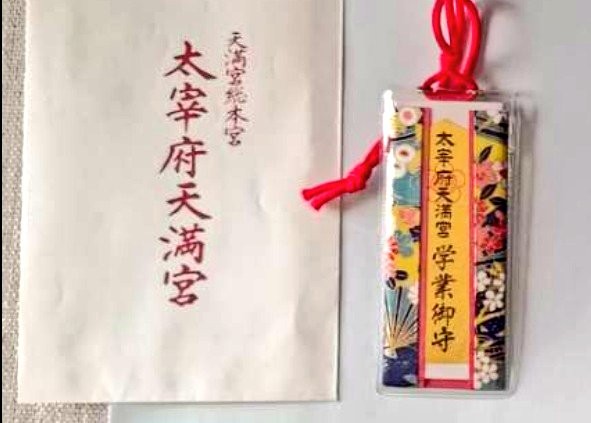 天満宮総本宮
太宰府天満宮
太宰府天満宮 学業御守